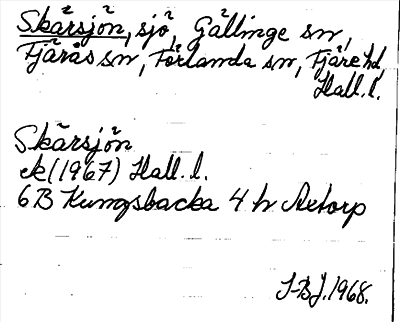 Skärsjön, sjö, Gällinge sn,
Fjärås sn, Förlanda sn, Fjäre hd,
Hall. l.
Skärsjön
ek (1967) Hall. l.
6B Kungsbacka 4 h Aetorp
I-BJ. 1968.